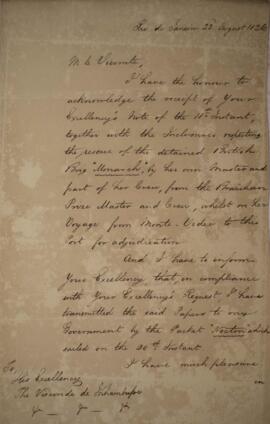 Rio de Janeiro 22d August 1826
M. le Vicomte,
I have the honour to
acknowledge the receipt of Your
Excellency's Note of the 11th Instant,
together with the Inclosures respecting
the rescue of the detained British
Brig "Monarch", by her own Master and
part of her Crew, from the Brazilian
Prize Master and Crew, whilst on her
Voyage from Monte-Video to this
Port for adjudication
And I have to inform
Your Excellency that, in compliance
with Your Excellency's Request, I have
transmitted the said Papers to my
Government by the Packet which
sailed on the 20th Instant.
I have much pleasure
in
To,
His Excellency
The Visconde de Inhambupe